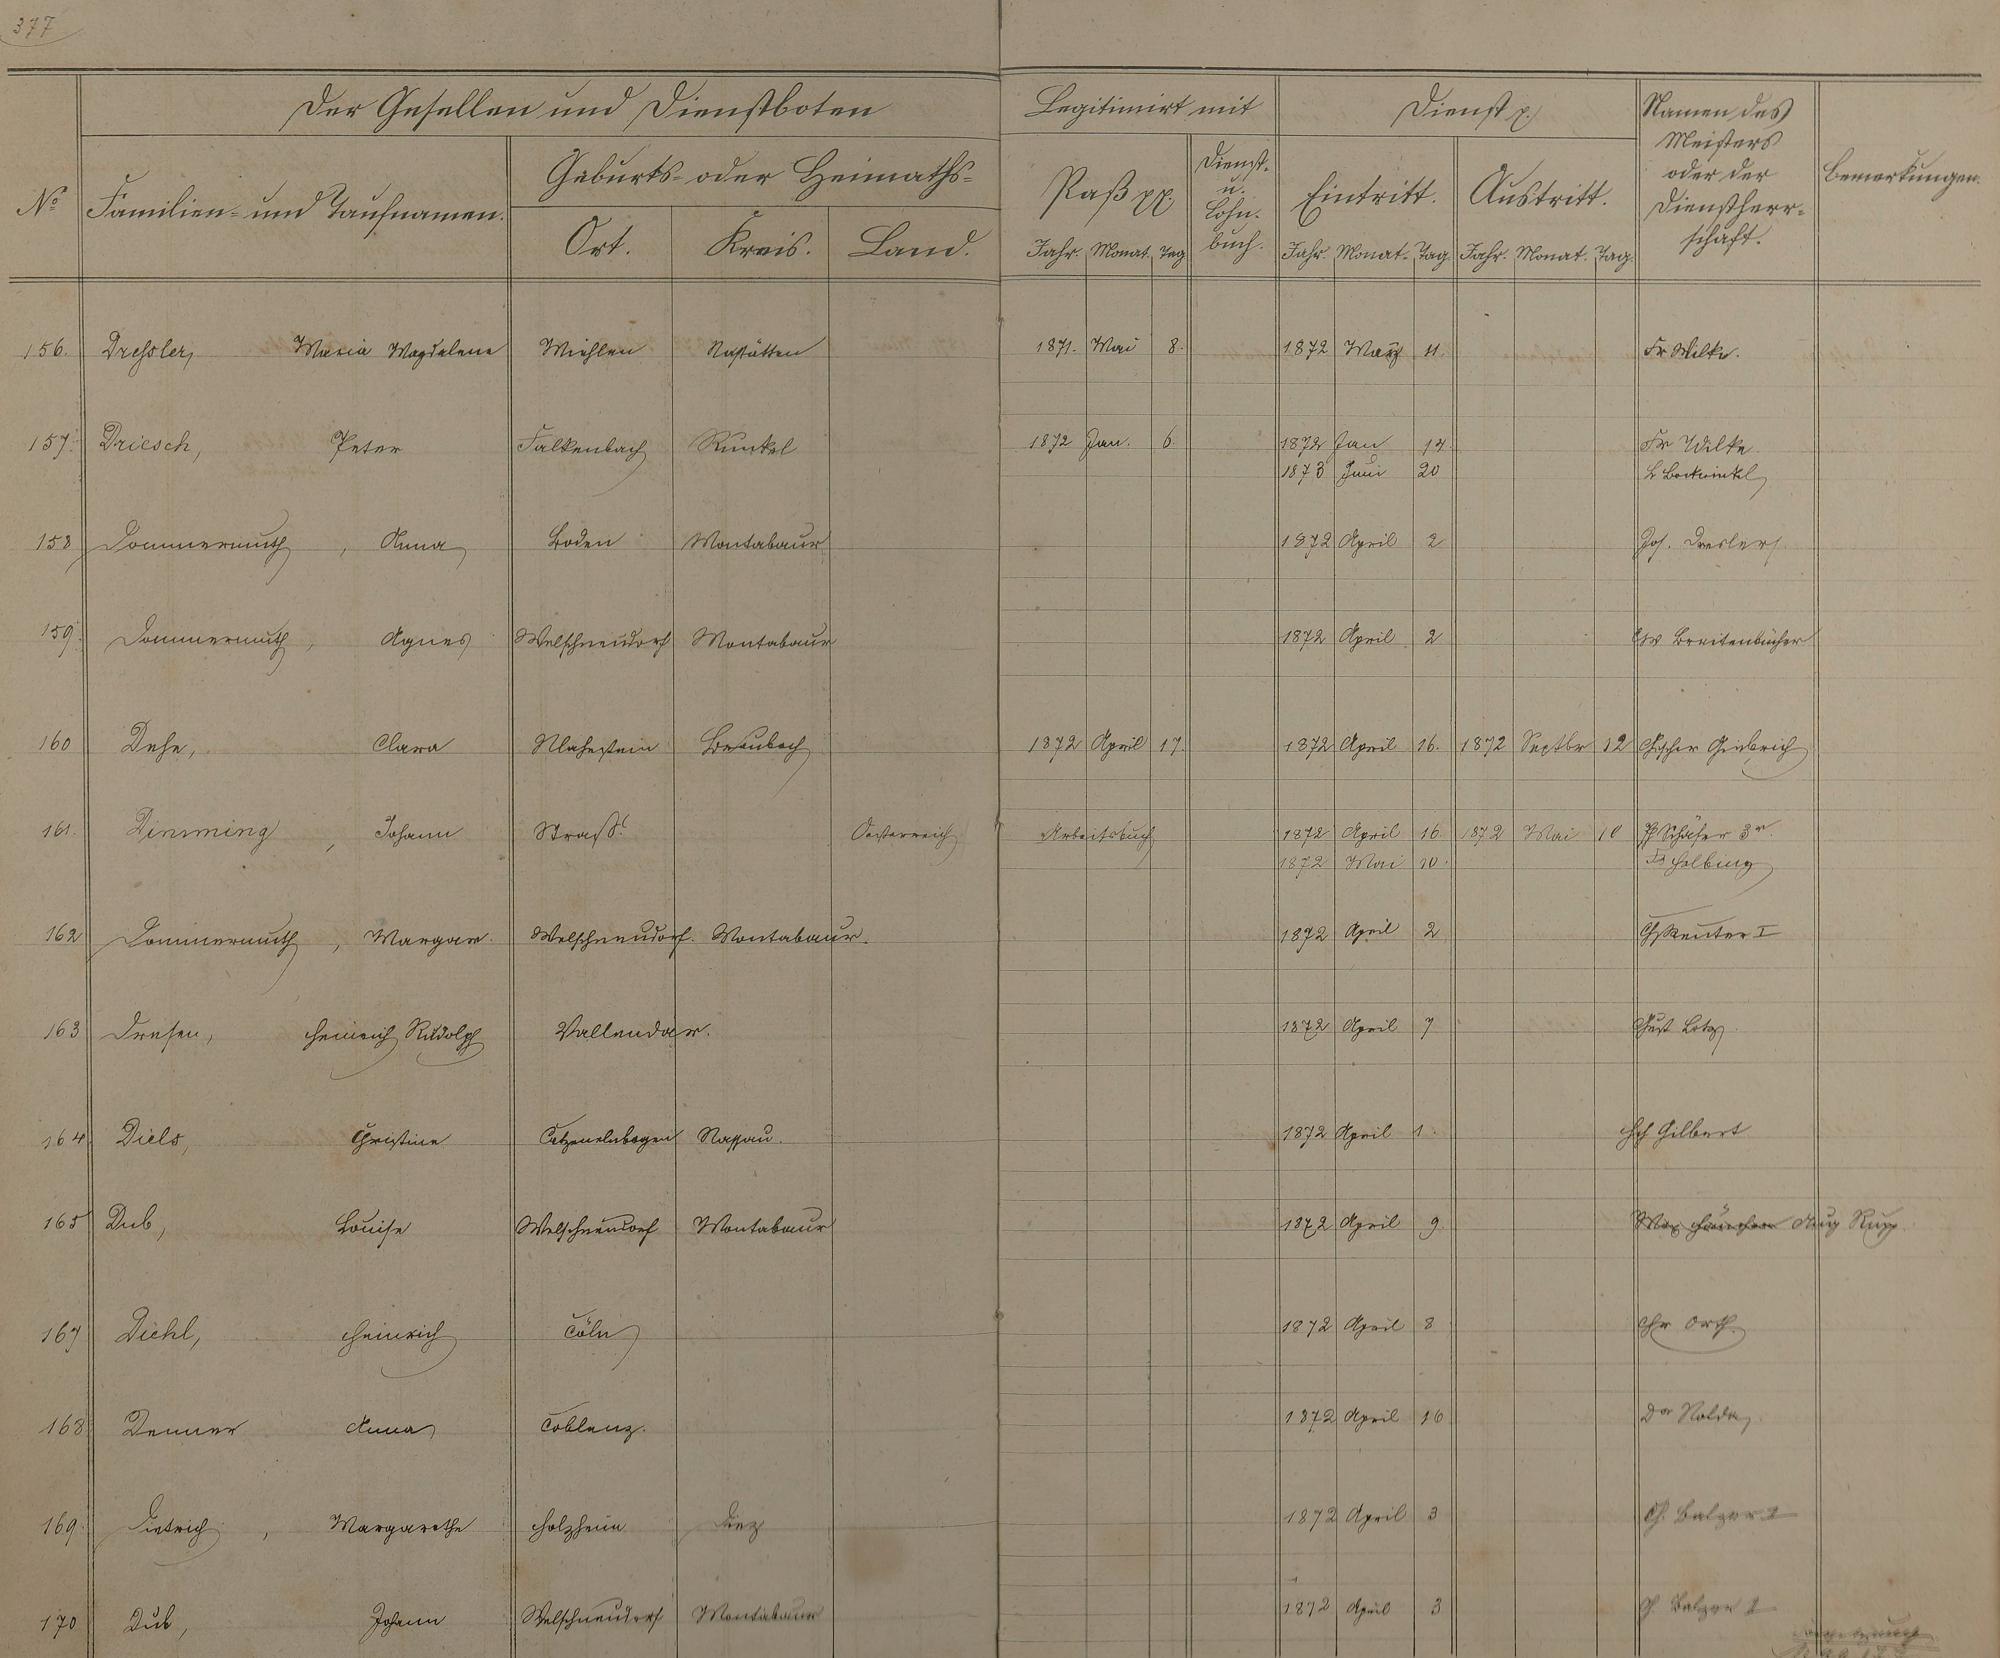 377
Der Gesellen und Dienstboten Legitimirt mit Dienst p. Namen des Meisters oder der Dienstherrschaft. Bemerkungen.
No Familien- und Taufnamen. Geburts- oder Heimaths- Paß pp. Dienst- u. Lohn- buch. Eintritt. Austritt.
Ort. Kreis. Land. Jahr. Monat. Tag Jahr. Monat. Tag. Jahr. Monat. Tag.
156. Dressler, Maria Magdalene Miehlen Nastätten 1871. Mai 8. 1872 März 11. Fr Wilke.
157. Driesch, Peter Falkenbach Runkel 1872 Jan. 6 1872 Jan 14. Fr Wilke.
1873 Juni 20
158 Dommermuth, Anna Boden Montabaur 1872 April 2 Jos. Dresler
159. Dommermuth, Agnes Welschneudorf Montabaur 1872 April 2 Breitenbücher
160 Dehe, Clara Braubach 1872 April 17. 1872 April 16. 1872 Septbr 12
161. Johann Straß. Oesterreich Arbeitsbuch 1872 April 16. 1872 Mai 10 Schäfer 3r.
1872 Mai 10. Helbing
162 Dommermuth, Margar. Welschneudorf. Montabaur. 1872 April 2 Reuter I
163 Dresen, Heinrich Rudolph Vallendar. 1872 April 7 Lotz.
164. Diels, Christine Catzenelnbogen Nassau. 1872 April 1. Gilbert
165 Dub, Louise Welschneudorf Montabaur 1872 April 9. Aug Rupp.
167 Diehl, Heinrich Cöln 1872 April 8 Chr Orth.
168 Denner Anna Coblenz. 1872 April 16 Dr Nolda.
169. Dietrich, Margarethe Holzheim Diez 1872 April 3 Ch. Balzer 2
170 Dub, Johann Welschneudorf Montabaur 1872 April 3 Ch. Balzer 2